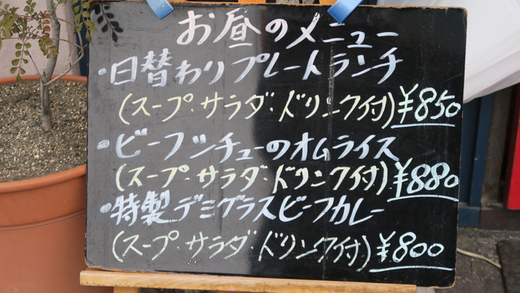 お昼のメニュー
・日替わりプレートランチ
(スープ・サラダ・ドリンク付)¥850
・ビーフシチューのオムライス
(スープ・サラダ・ドリンク付)¥880
・特製デミグラスビーフカレー
(スープ・サラダ・ドリンク付)¥800